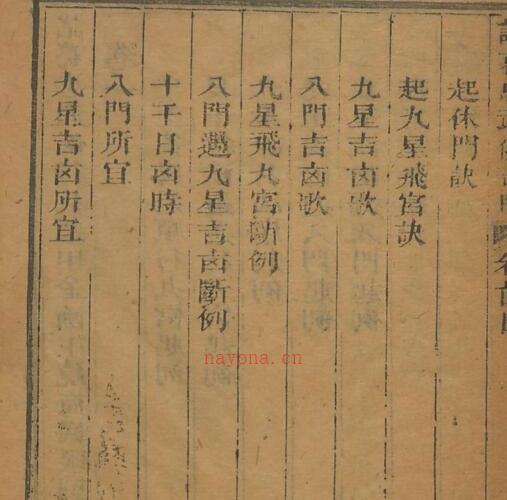 起休門訣
起九星飛宮訣
九星吉凶歌
八門吉凶歌
九星飛九宮断例
八門遇九星吉凶斷例
十干日凶時
八門所宜
九星吉凶所宜
nayona.cn